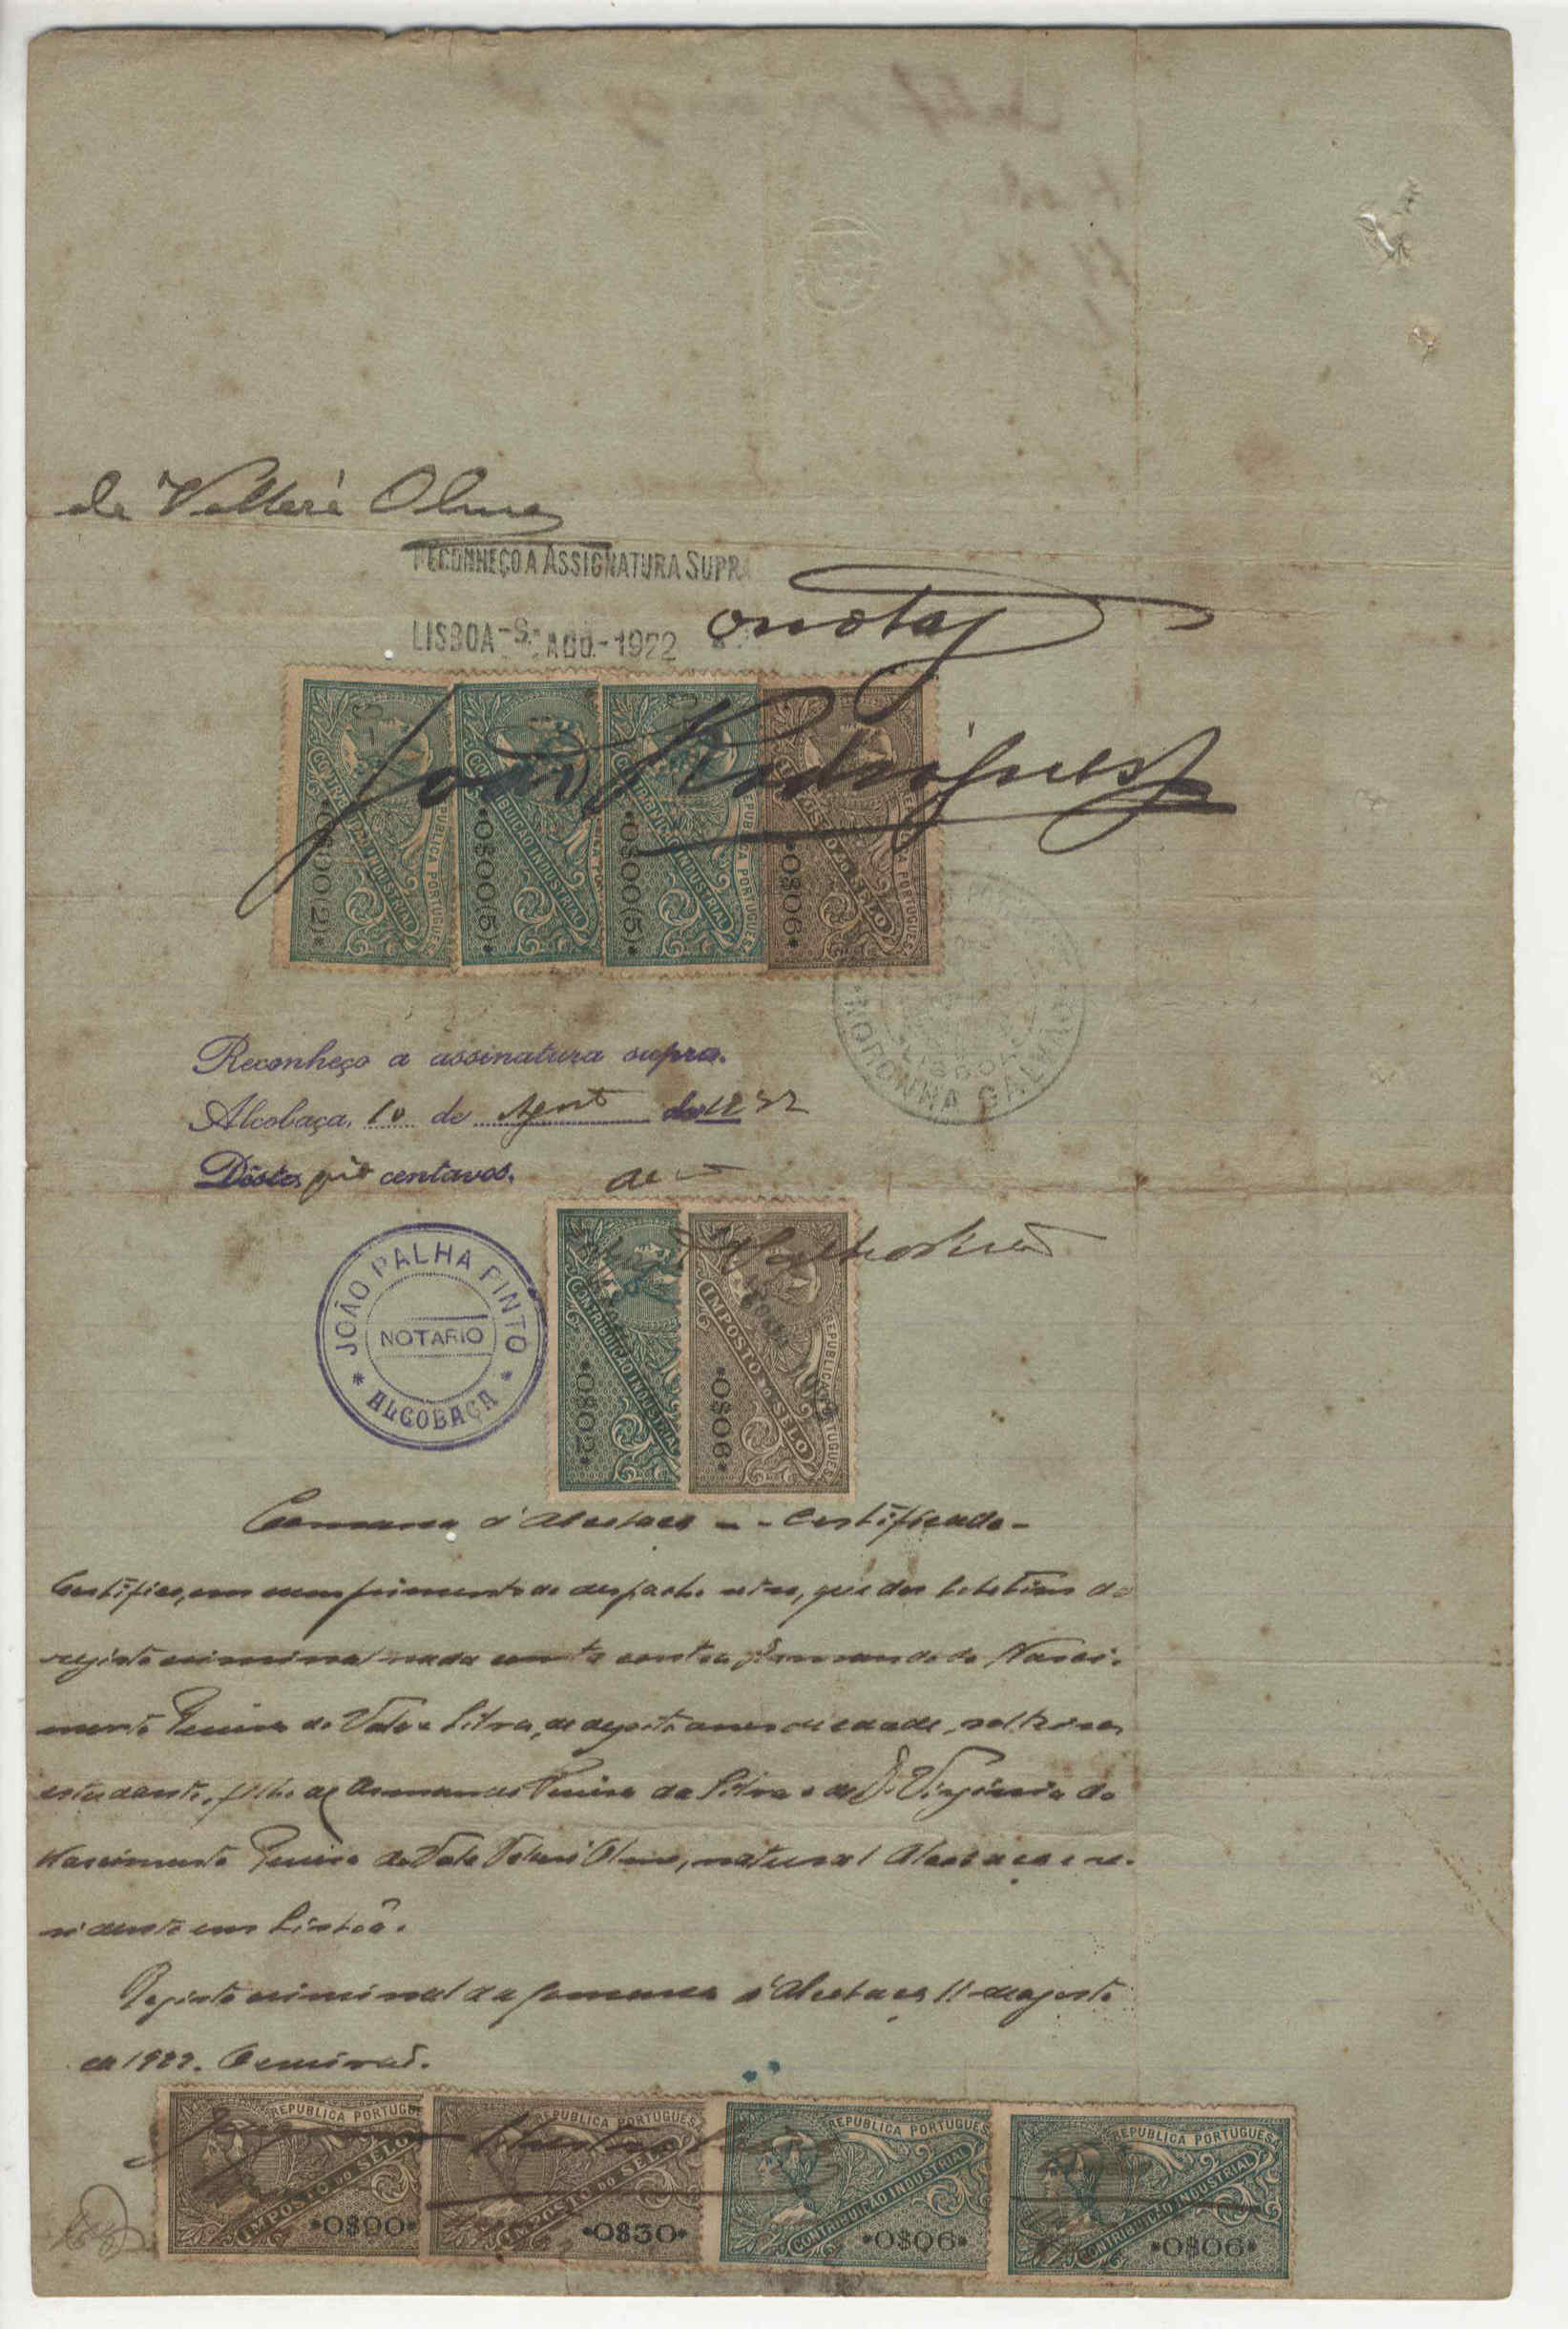 de Valleré Olme
RECONHEÇO A ASSIGNATURA SUPRA
LISBOA -9. AGO.-1922
O notº
João Rodrigues
REPUBLICA PORTUGUESA
CONTRIBUIÇÃO INDUSTRIAL
0$00(2)
CONTRIBUIÇÃO INDUSTRIAL
0$00(5)
REPUBLICA PORTUGUESA
CONTRIBUIÇÃO INDUSTRIAL
0$00(5)
REPUBLICA PORTUGUESA
IMPOSTO DO SELO
0$06
NORONHA GALVÃO
LISBOA
Reconheço a assinatura supra.
Alcobaça, 10 de Agosto de 1922
Déstes oito centavos.
JOÃO PALHA PINTO
NOTARIO
ALCOBAÇA
CONTRIBUIÇÃO INDUSTRIAL
0$02
REPUBLICA PORTUGUESA
IMPOSTO DO SELO
0$06
Comarca d'Alcobaça -- Certificado -
Certifico, em cumprimento do despacho retro, que dos boletins do
registo criminal nada consta contra Armando do Nasci-
mento Pereira do Vale e Silva, de dezoito anos de edade, solteiro,
estudante, filho de Armando Pereira da Silva e de D. Virginia do
Nascimento Pereira do Vale Valeré Olme, natural d'Alcobaça e re-
sidente em Lisbôa.
Registo criminal da comarca d'Alcobaça, 11 de agosto
de 1922.
REPUBLICA PORTUGUE
IMPOSTO DO SELO
0$90
REPUBLICA PORTUGUES
IMPOSTO DO SELO
0$30
REPUBLICA PORTUGUES
CONTRIBUIÇÃO INDUSTRIAL
0$06
REPUBLICA PORTUGUESA
CONTRIBUIÇÃO INDUSTRIAL
0$06